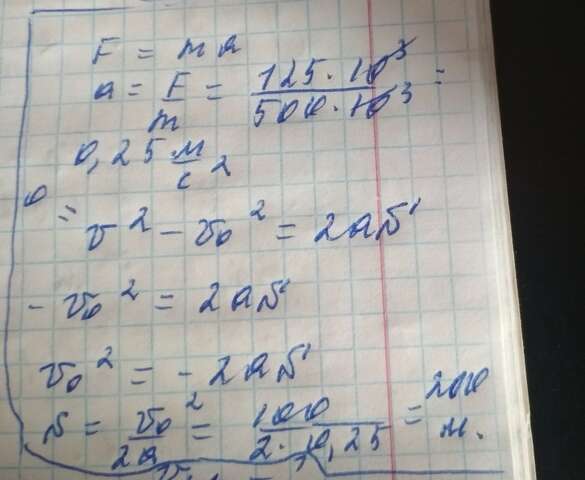 F = ma
a = F/m = 125·10³/500·10³ =
0,25 м/с²
0 = v² - v₀² = 2as
- v₀² = 2as
v₀² = - 2as
s = v₀²/2a = 100/2·0,25 = 200 м.